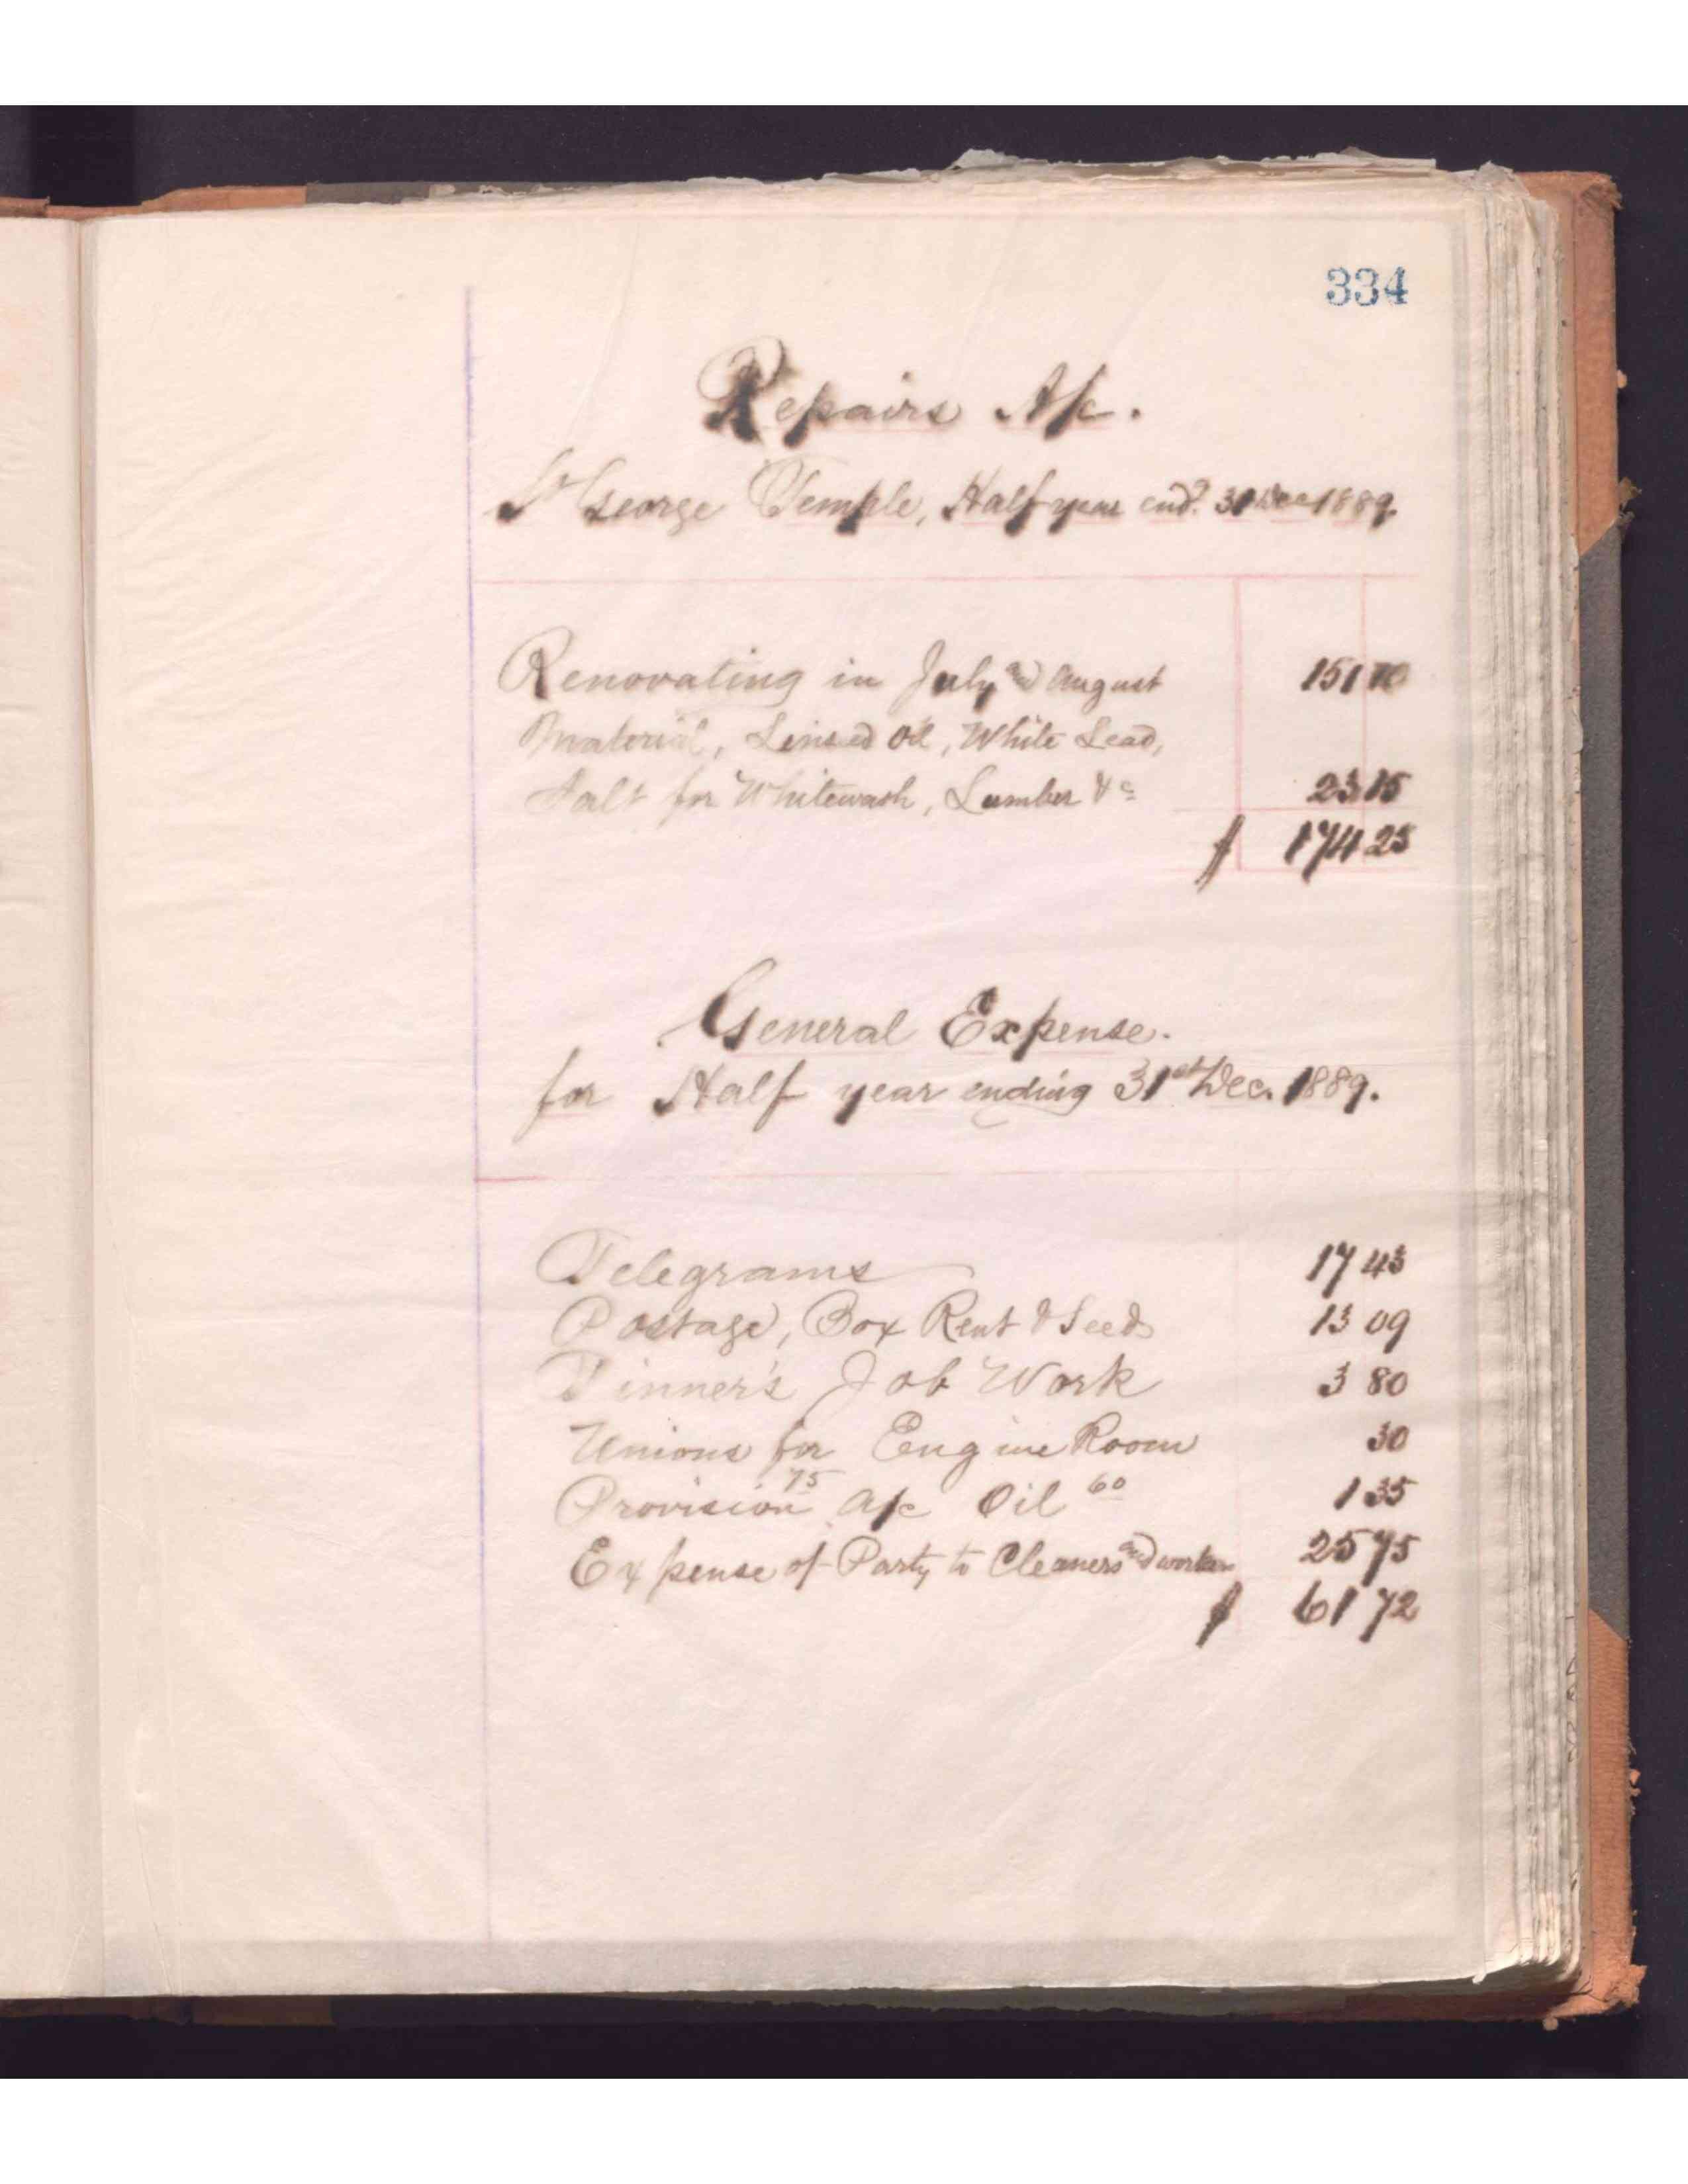 334
Repairs A/c.
St George Temple, Half year endg. 31 Dec 1889.
Renovating in July and August 151 10
Material, Linseed Oil, White Lead,
Salt for Whitewash, Lumber &c 23 15
$ 174 25
General Expense.
for Half year ending 31st Dec. 1889.
Telegrams 17 43
Postage, Box Rent & Seeds 13 09
Tinner's Job Work 3 80
Unions for Engine Room 30
Provision 75 a/c Oil 60 1 35
Expense of Party to Cleaners and workers 25 75
$ 61 72